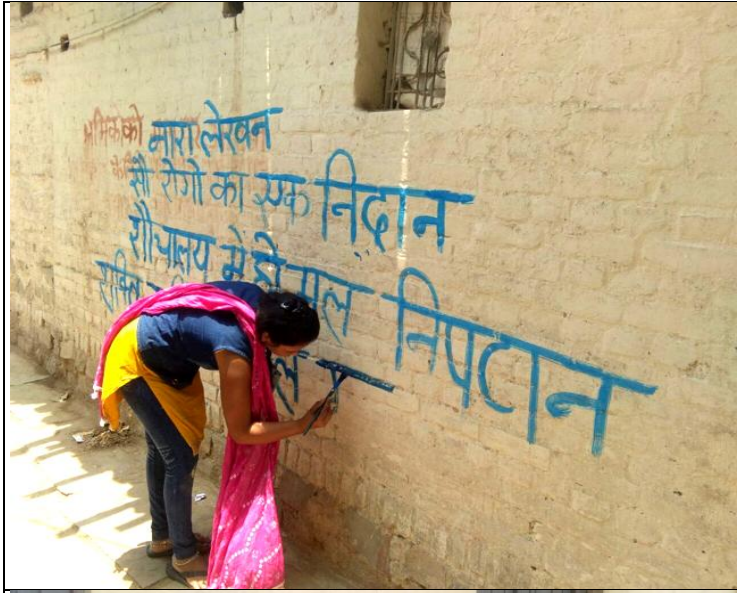 नारा लेखन
सौ रोगो का एक निदान
शौचालय मे हो मल निपटान
शक्ति